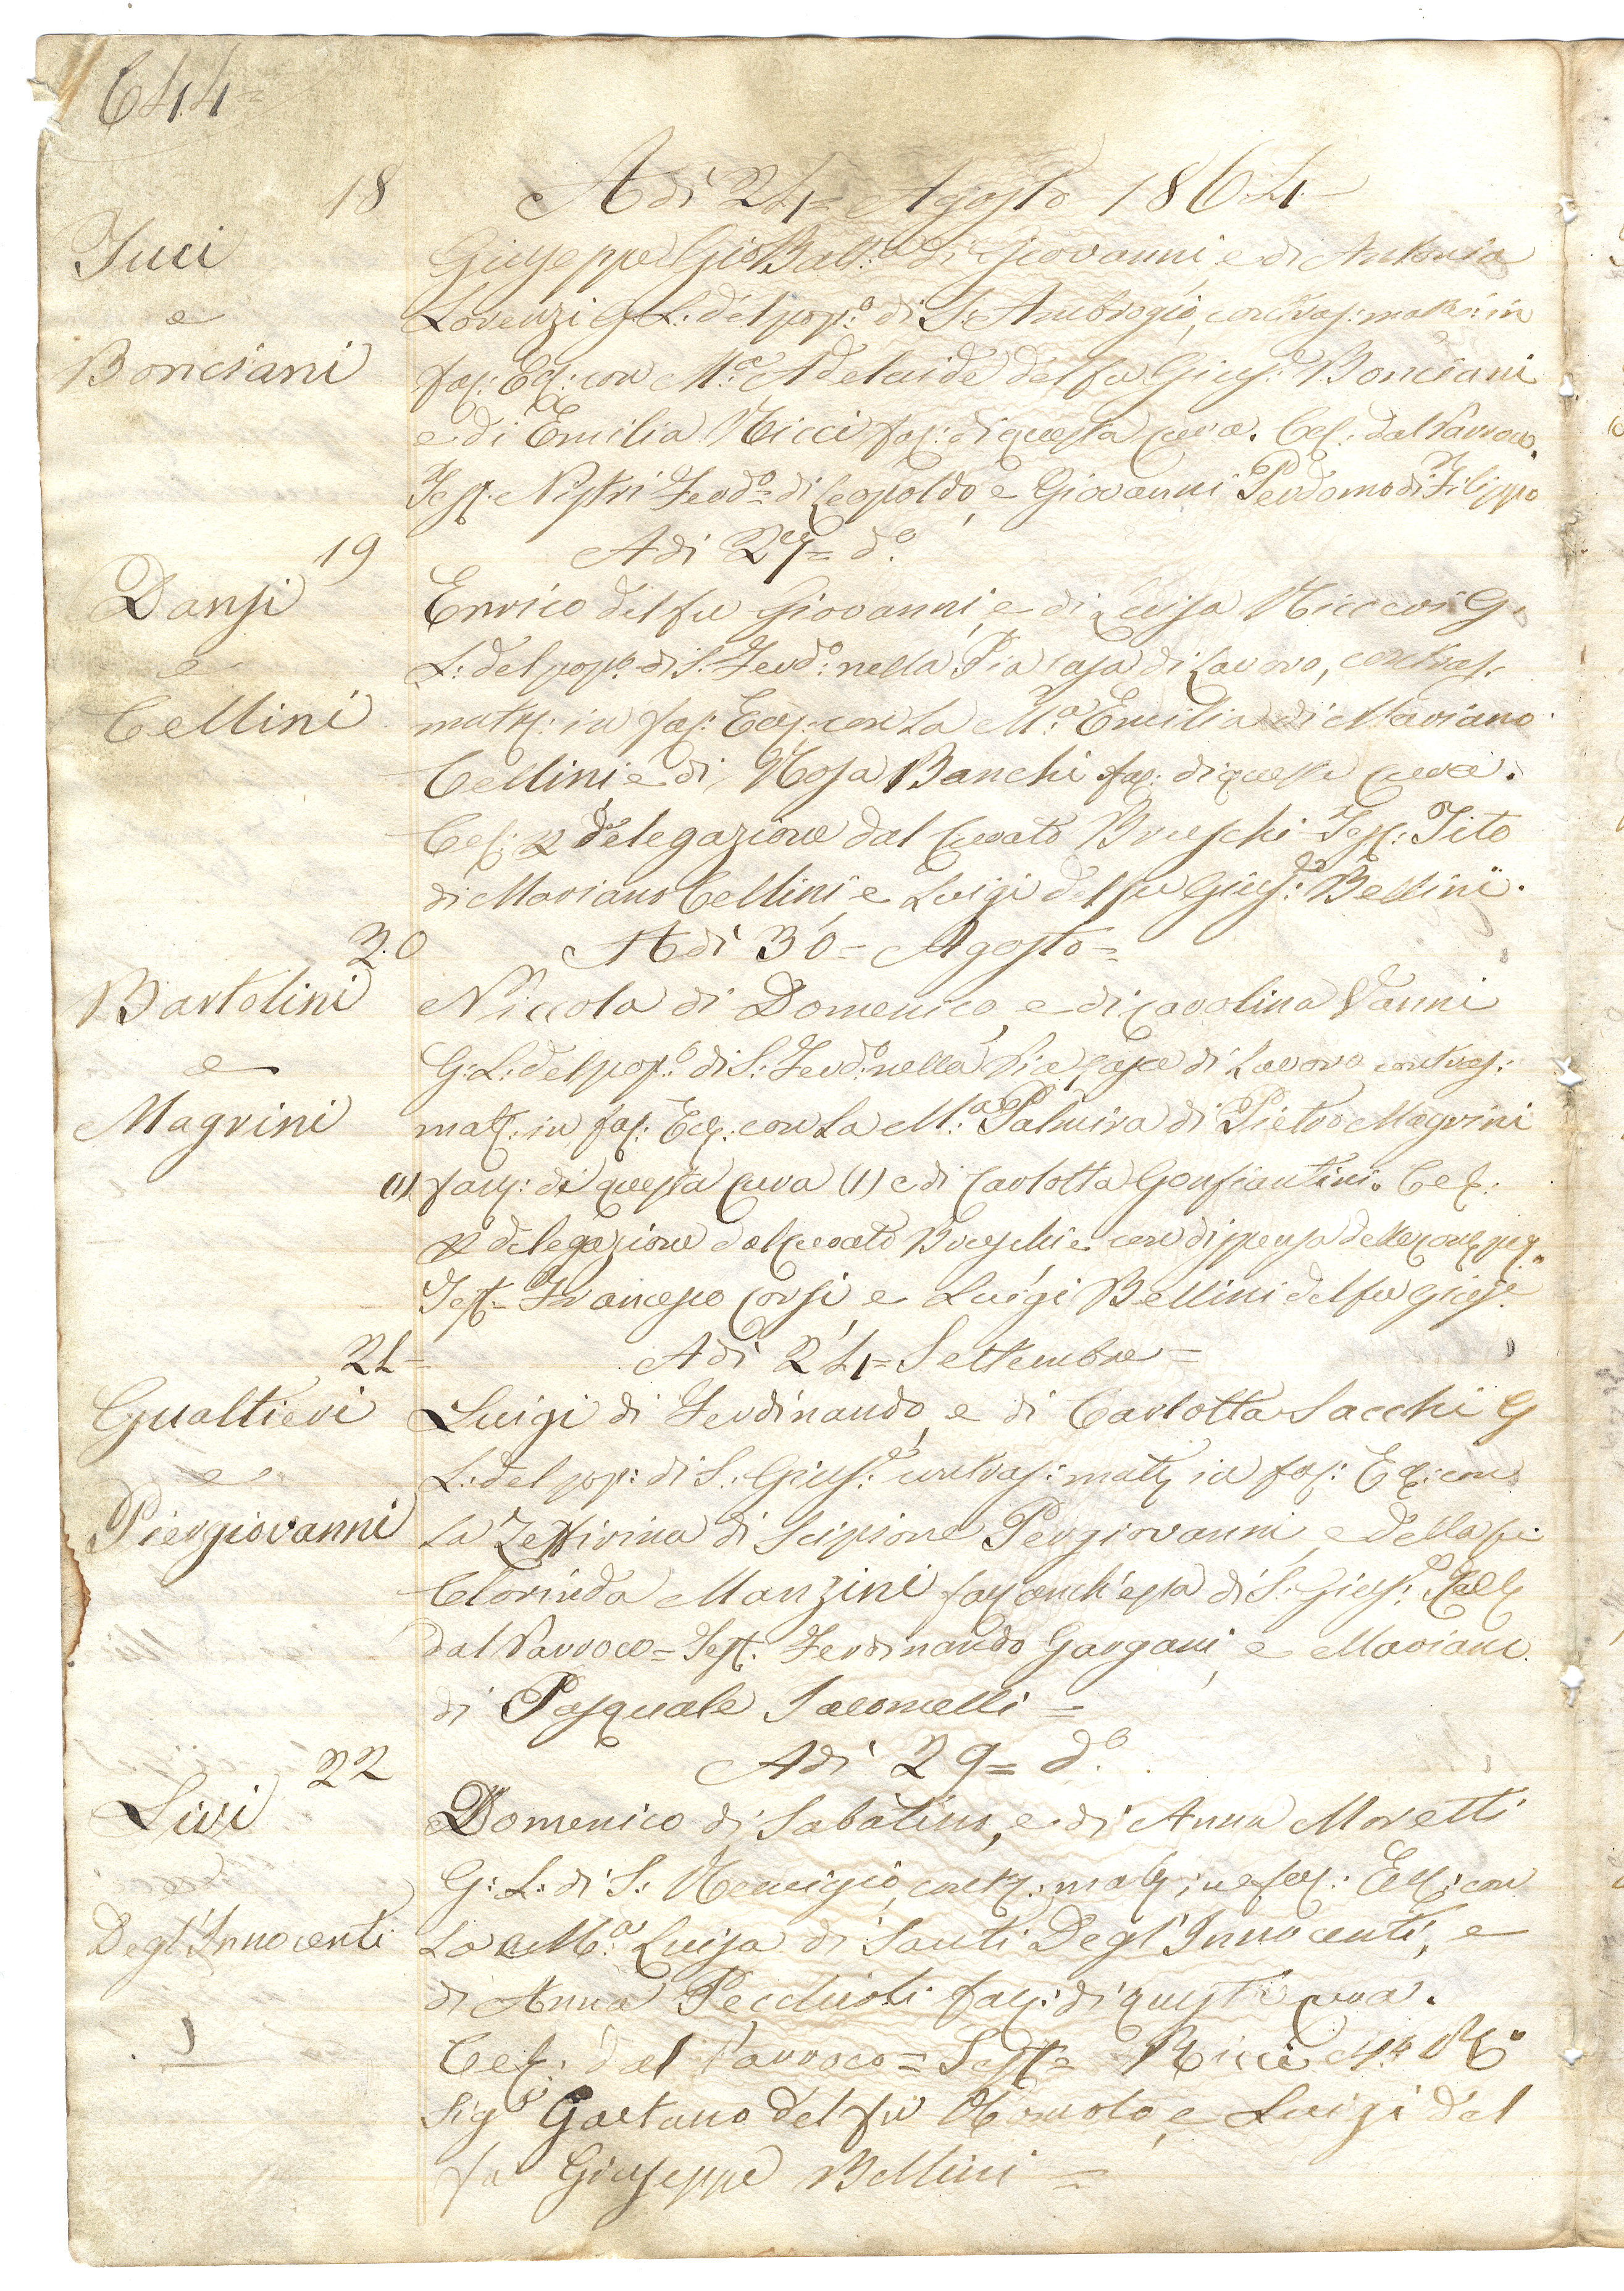 644=
18 A dì 24= Agosto 1864
Iuci
e
Bonciani
Giuseppe GioBatt:a di Giovanni, e di Antonia
Lorenzi G: L: del pop:o di S. Ambrogio, contras: matr: in
fac: Ecc: con M:a Adelaide del fu Gius:e Bonciani
e di Emilia Ricci fac: di questa cura. Cel: dal Parroco.
Test: Nistri Ferd:o di Leopoldo, e Giovanni Perdomo di Filippo
19 A dì 27= d:o
Dansi
e
Cellini
Enrico del fu Giovanni, e di Luisa Ricceri G.
L: del pop:o di S. Ferd:o nella Pia Casa di Lavoro, contras:
matr: in fac: Ecc: con La M:a Emilia di Mariano
Cellini e di Rosa Banchi fac: di questa cura.
Cel: p delegazione dal Curato Brieschi Test: Tito
di Mariano Cellini, e Luigi del fu Gius:e Bellini.
20 A dì 30= Agosto=
Bartolini
e
Magrini
Niccola di Domenico, e di Carolina Vanni
G: L: del pop:o di S: Ferd:o nella Pia Casa di Lavoro contras:
matr: in fac: Ecc: con La M:a Palmira di Pietro Magrini
(1) fac: di questa Cura (1) e di Carlotta Gonfiantini. Cel:
p delegazione dal Curato Brieschi e con dispensa delle
Test= Francesco Corsi e Luigi Bellini del fu Gius:e
21= A dì 24= Settembre=
Gualtieri
e
Piergiovanni
Luigi di Ferdinando, e di Carlotta Sacchi G
L: del pop: di S: Gius:e contras: matr in fac: Ecc: con
La Zeffirina di Scipione Pergiovanni, e della fu
Clorinda Manzini fac anch'essa di S. Gius:e Cel
dal Parroco= Test: Ferdinando Gargani, e Mariano
di Pasquale Iacomelli=
22 A dì 29= d:o
Livi
Degl'Innocenti
Domenico di Sabatino, e di Anna Moretti
G: L: di S: Remigio, contr: matr in fac: Ecc: con
La M:a Luisa di Santi Degl'Innocenti, e
di Anna Pecchioli fac: di questa cura.
Cel: dal Parroco= Test= Ricci
Sig:r Gaetano del fu Romolo, e Luigi del
fu Giuseppe Bellini=